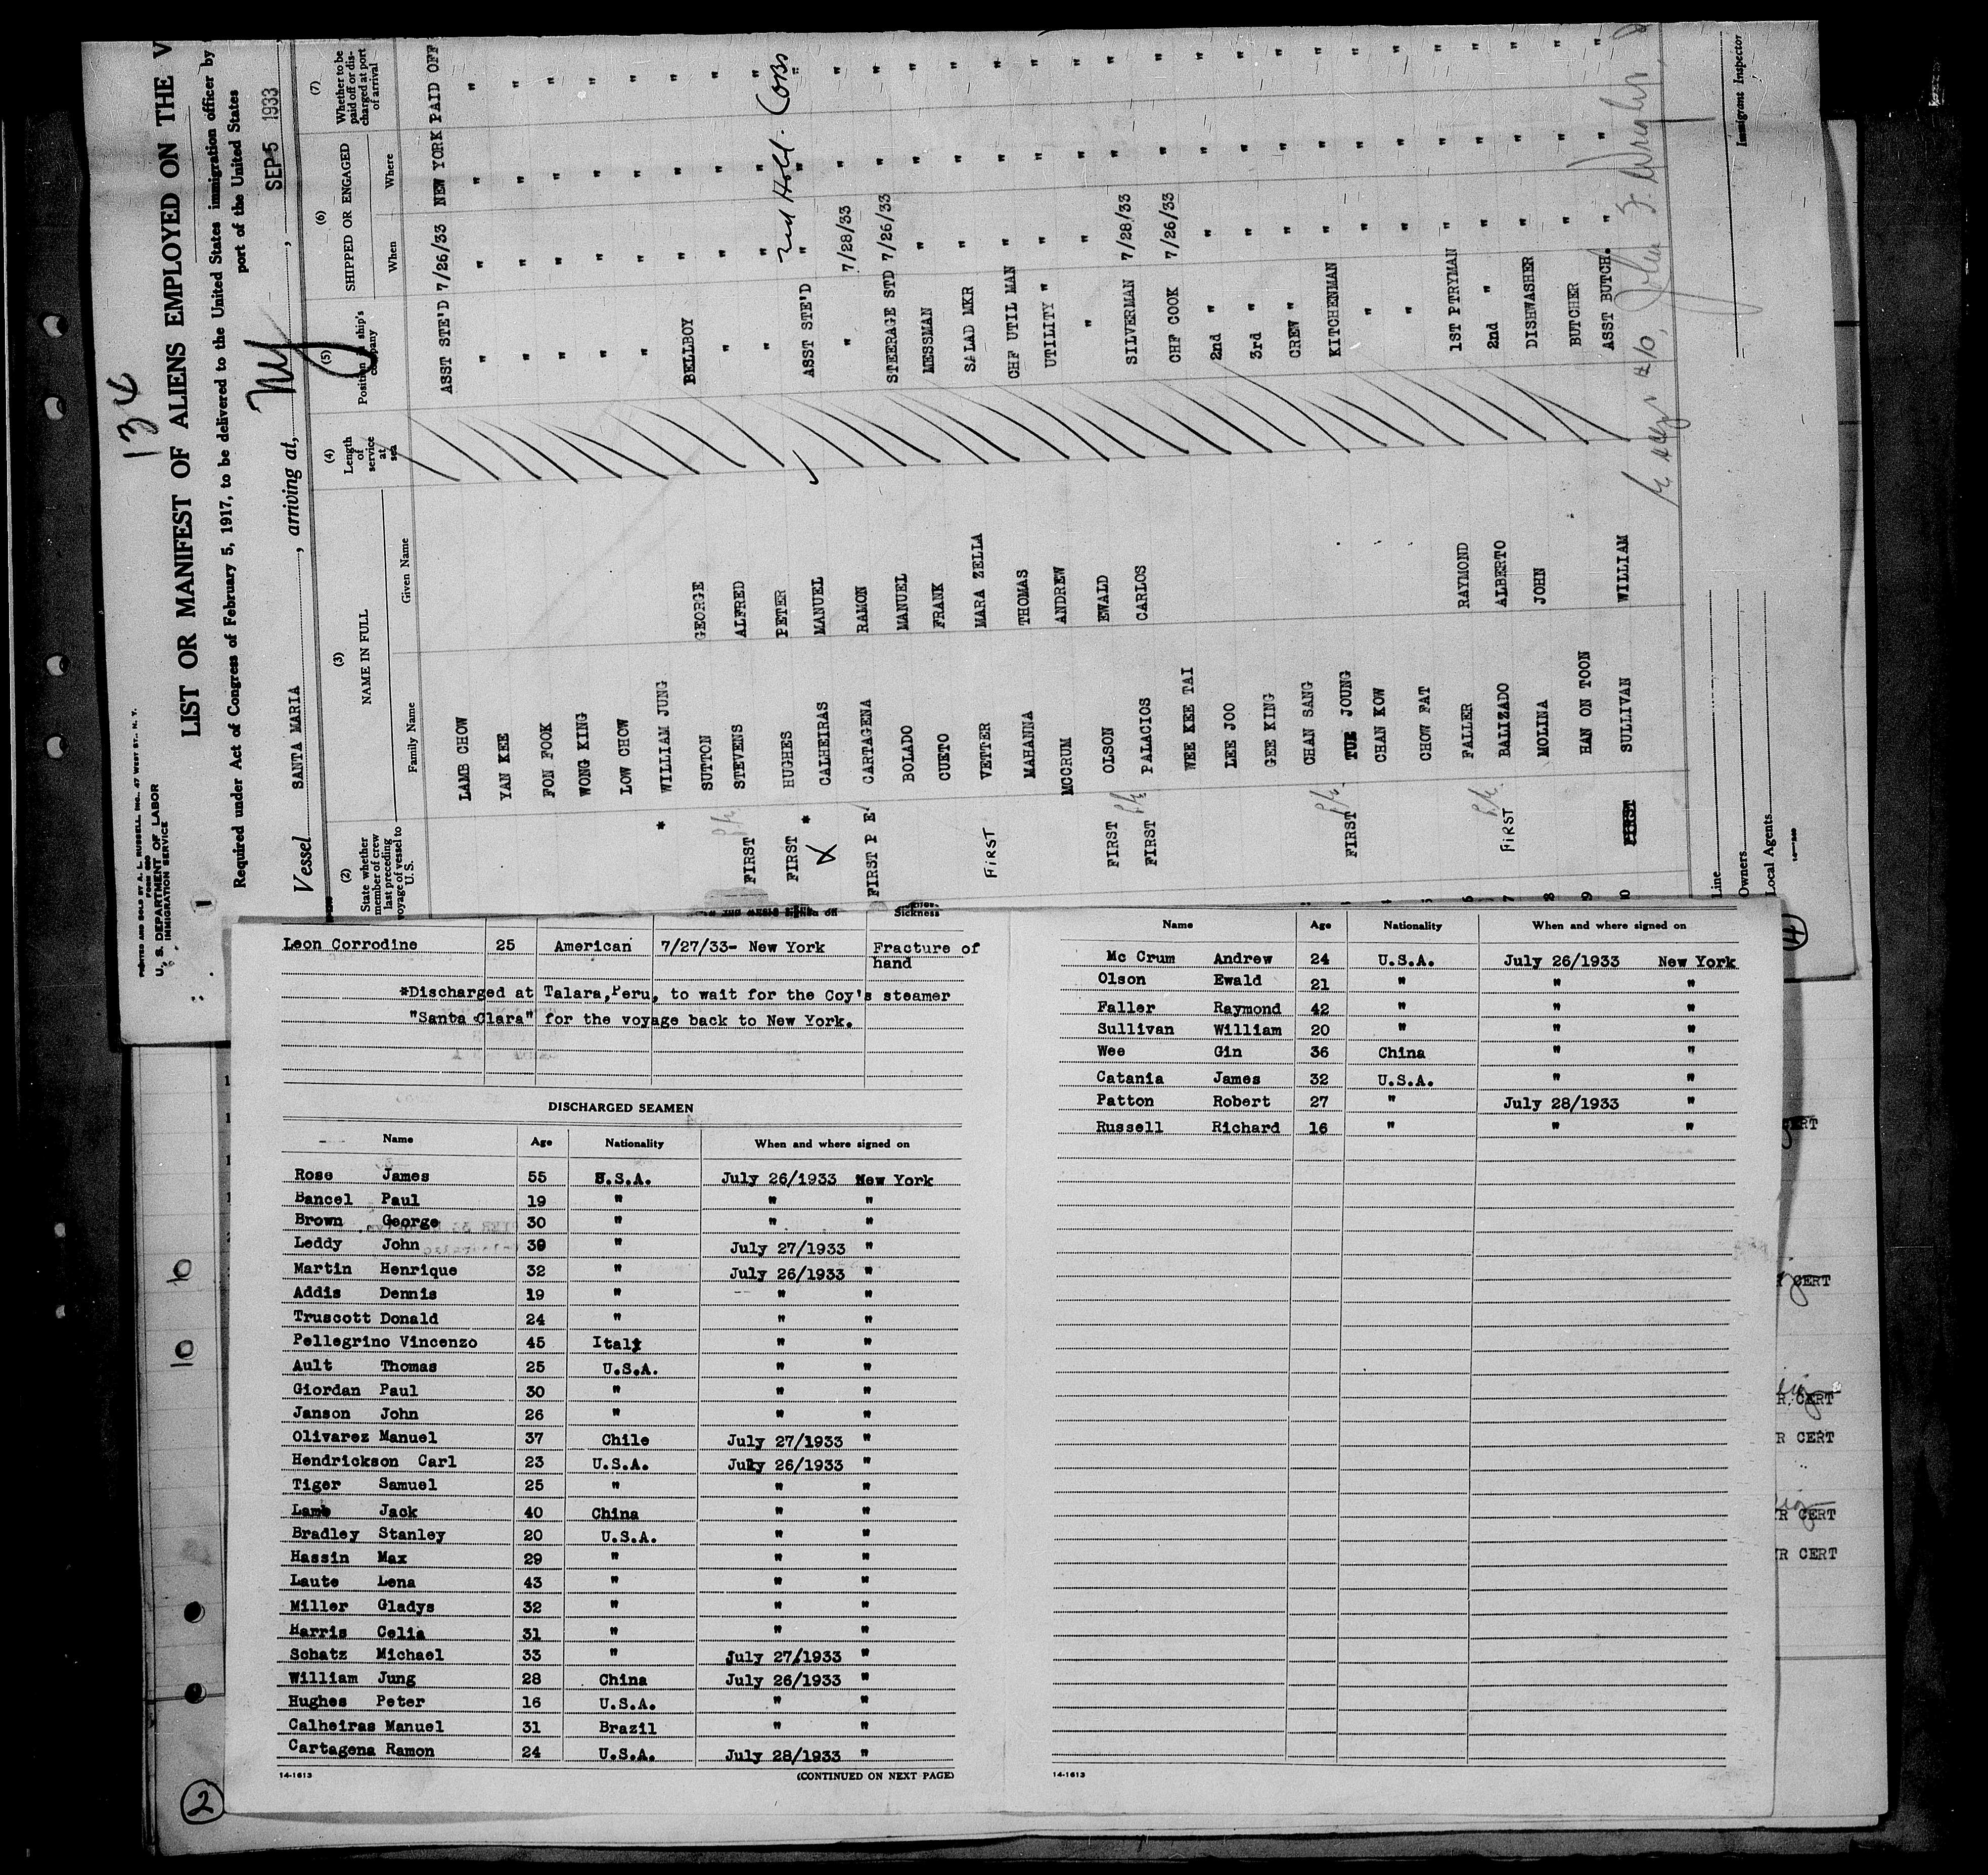 134
PRINTED AND SOLD BY A. L. RUSSELL, INC., 47 WEST ST., N. Y.
FORM 680
U. S. DEPARTMENT OF LABOR
IMMIGRATION SERVICE
1
LIST OR MANIFEST OF ALIENS EMPLOYED ON THE V
Required under Act of Congress of February 5, 1917, to be delivered to the United States immigration officer by
port of the United States
Vessel SANTA MARIA , arriving at, NY , SEP 5 1933
(2) (3) (4) (5) (6) (7)
State whether member of crew last preceding voyage of vessel to U.S. NAME IN FULL Length of service at sea Position in ship's company SHIPPED OR ENGAGED Whether to be paid off or discharged at port of arrival
Family Name Given Name When Where
LAMB CHOW ASST STE'D 7/26/33 NEW YORK PAID OFF
YAN KEE " " " "
FON FOOK " " " "
WONG KING " " " "
LOW CHOW " " " "
* WILLIAM JUNG " " " "
SUTTON GEORGE BELLBOY " " "
FIRST STEVENS ALFRED " " " "
FIRST HUGHES PETER " " " "
* CALHEIRAS MANUEL ASST STE'D " " "
FIRST P E CARTAGENA RAMON " 7/28/33 " "
BOLADO MANUEL STEERAGE STD 7/26/33 " "
CUETO FRANK MESSMAN " " "
FIRST VETTER MARA ZELLA SALAD MKR " " "
MAHANNA THOMAS CHF UTIL MAN " " "
MCCRUM ANDREW UTILITY " " " "
FIRST OLSON EWALD " " " "
FIRST PALACIOS CARLOS SILVERMAN 7/28/33 " "
WEE KEE TAI CHF COOK 7/26/33 " "
LEE JOO 2nd " " " "
GEE KING 3rd " " " "
CHAN SANG CREW " " " "
FIRST TUE JOUNG KITCHENMAN " " "
CHAN KOW " " " "
CHOW FAT " " " "
FALLER RAYMOND 1ST PTRYMAN " " "
FIRST BALIZADO ALBERTO 2nd " " " "
MOLINA JOHN DISHWASHER " " "
HAN ON TOON BUTCHER " " "
FIRST SULLIVAN WILLIAM ASST BUTCH. " " "
Line
Owners
Local Agents
Immigrant Inspector
Sickness
Leon Corrodine 25 American 7/27/33- New York Fracture of
hand
*Discharged at Talara, Peru, to wait for the Coy's steamer
"Santa Clara" for the voyage back to New York.
DISCHARGED SEAMEN
Name Age Nationality When and where signed on
Rose James 55 U.S.A. July 26/1933 New York
Bancel Paul 19 " " "
Brown George 30 " " "
Leddy John 39 " July 27/1933 "
Martin Henrique 32 " July 26/1933 "
Addis Dennis 19 " " "
Truscott Donald 24 " " "
Pellegrino Vincenzo 45 Italy " "
Ault Thomas 25 U.S.A. " "
Giordan Paul 30 " " "
Janson John 26 " " "
Olivarez Manuel 37 Chile July 27/1933 "
Hendrickson Carl 23 U.S.A. July 26/1933 "
Tiger Samuel 25 " " "
Lamb Jack 40 China " "
Bradley Stanley 20 U.S.A. " "
Hassin Max 29 " " "
Laute Lena 43 " " "
Miller Gladys 32 " " "
Harris Celia 31 " " "
Schatz Michael 33 " July 27/1933 "
William Jung 28 China July 26/1933 "
Hughes Peter 16 U.S.A. " "
Calheiras Manuel 31 Brazil " "
Cartagena Ramon 24 U.S.A. July 28/1933 "
14-1613 (CONTINUED ON NEXT PAGE)
Name Age Nationality When and where signed on
Mc Crum Andrew 24 U.S.A. July 26/1933 New York
Olson Ewald 21 " " "
Faller Raymond 42 " " "
Sullivan William 20 " " "
Wee Gin 36 China " "
Catania James 32 U.S.A. " "
Patton Robert 27 " July 28/1933 "
Russell Richard 16 " " "
14-1613
CERT
CERT
R CERT
R CERT
R CERT
R CERT
10
10
2